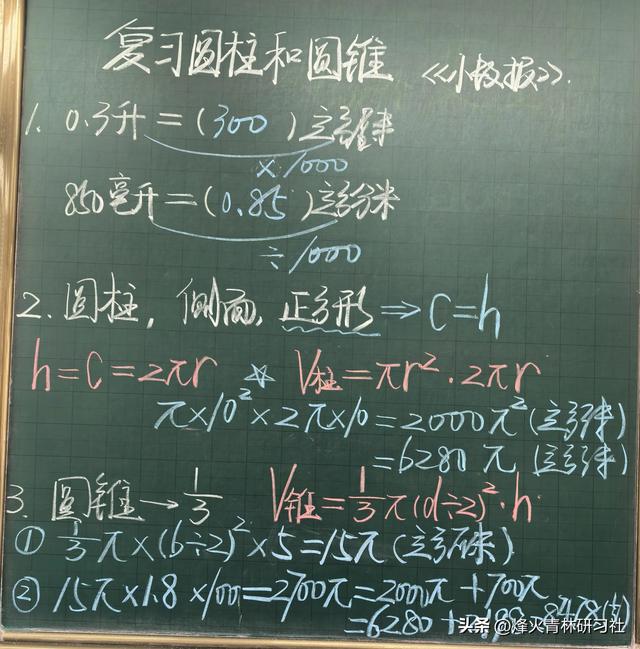 复习圆柱和圆锥 《小数报》.
1. 0.3升=(300)立方厘米
×1000
850毫升=(0.85)立方分米
÷1000
2. 圆柱, 侧面, 正方形⇒C=h
h=C=2πr ☆ V柱=πr²·2πr
π×10²×2π×10=2000π²(立方厘米)
=6280π(立方厘米)
3. 圆锥→1/3 V锥=1/3π(d÷2)²·h
① 1/3π×(6÷2)²×5=15π(立方厘米)
② 15π×1.8×100=2700π=2000π+700π
=6280+2198=8478(克)
头条 @烽火青林研习社